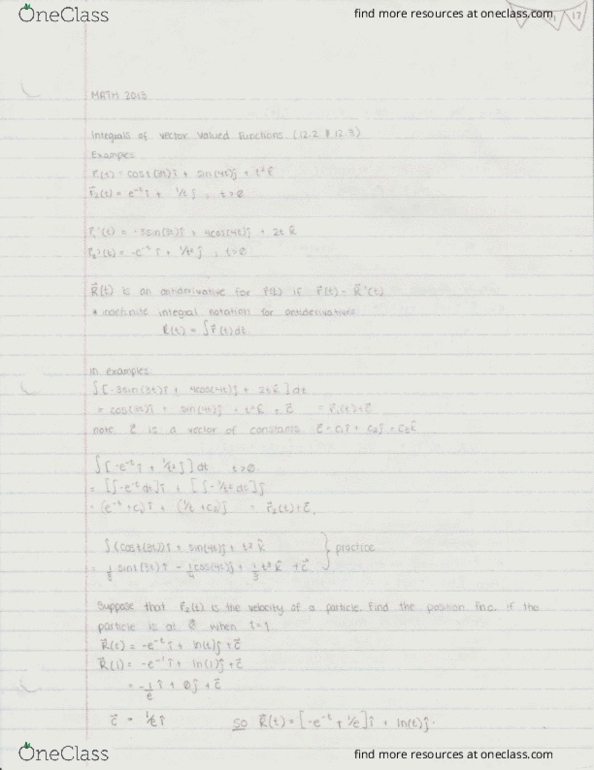 OneClass
find more resources at oneclass.com
17
MATH 2013
Integrals of vector valued functions (12.2 & 12.3)
Examples
r₁(t) = cos(3t)î + sin(4t)ĵ + t²k̂
r⃗₂(t) = e⁻ᵗ î + 1/t ĵ , t>0
r⃗₁'(t) = -3sin(3t)î + 4cos(4t)ĵ + 2t k̂
r⃗₂'(t) = -e⁻ᵗ î + 1/t² ĵ , t>0
R⃗(t) is an antiderivative for r⃗(t) if r⃗(t) = R⃗'(t)
* indefinite integral notation for antiderivatives
R(t) = ∫r⃗(t)dt
in examples
∫[-3sin(3t)î + 4cos(4t)ĵ + 2tk̂]dt
= cos(3t)î + sin(4t)ĵ + t²k̂ + c⃗ = r⃗₁(t)+c⃗
note c⃗ is a vector of constants c⃗ = c₁î + c₂ĵ + c₃k̂
∫[-e⁻ᵗ î + 1/t² ĵ]dt t>0
= [∫-e⁻ᵗ dt]î + [∫-1/t² dt]ĵ
= (e⁻ᵗ + c₁)î + (1/t + c₂)ĵ = r⃗₂(t)+c⃗,
∫(cos(3t))î + sin(4t)ĵ + t² k̂ } practice
= 1/3 sin(3t)î - 1/4 cos(4t)ĵ + 1/3 t³ k̂ + c⃗
Suppose that r⃗₂(t) is the velocity of a particle. Find the position fnc. if the
particle is at 0⃗ when t=1
R⃗(t) = -e⁻ᵗ î + ln(t)ĵ + c⃗
R⃗(1) = -e⁻¹ î + ln(1)ĵ + c⃗
= -1/e î + 0ĵ + c⃗
c⃗ = 1/e î so R⃗(t) = [-e⁻ᵗ + 1/e]î + ln(t)ĵ.
OneClass
find more resources at oneclass.com